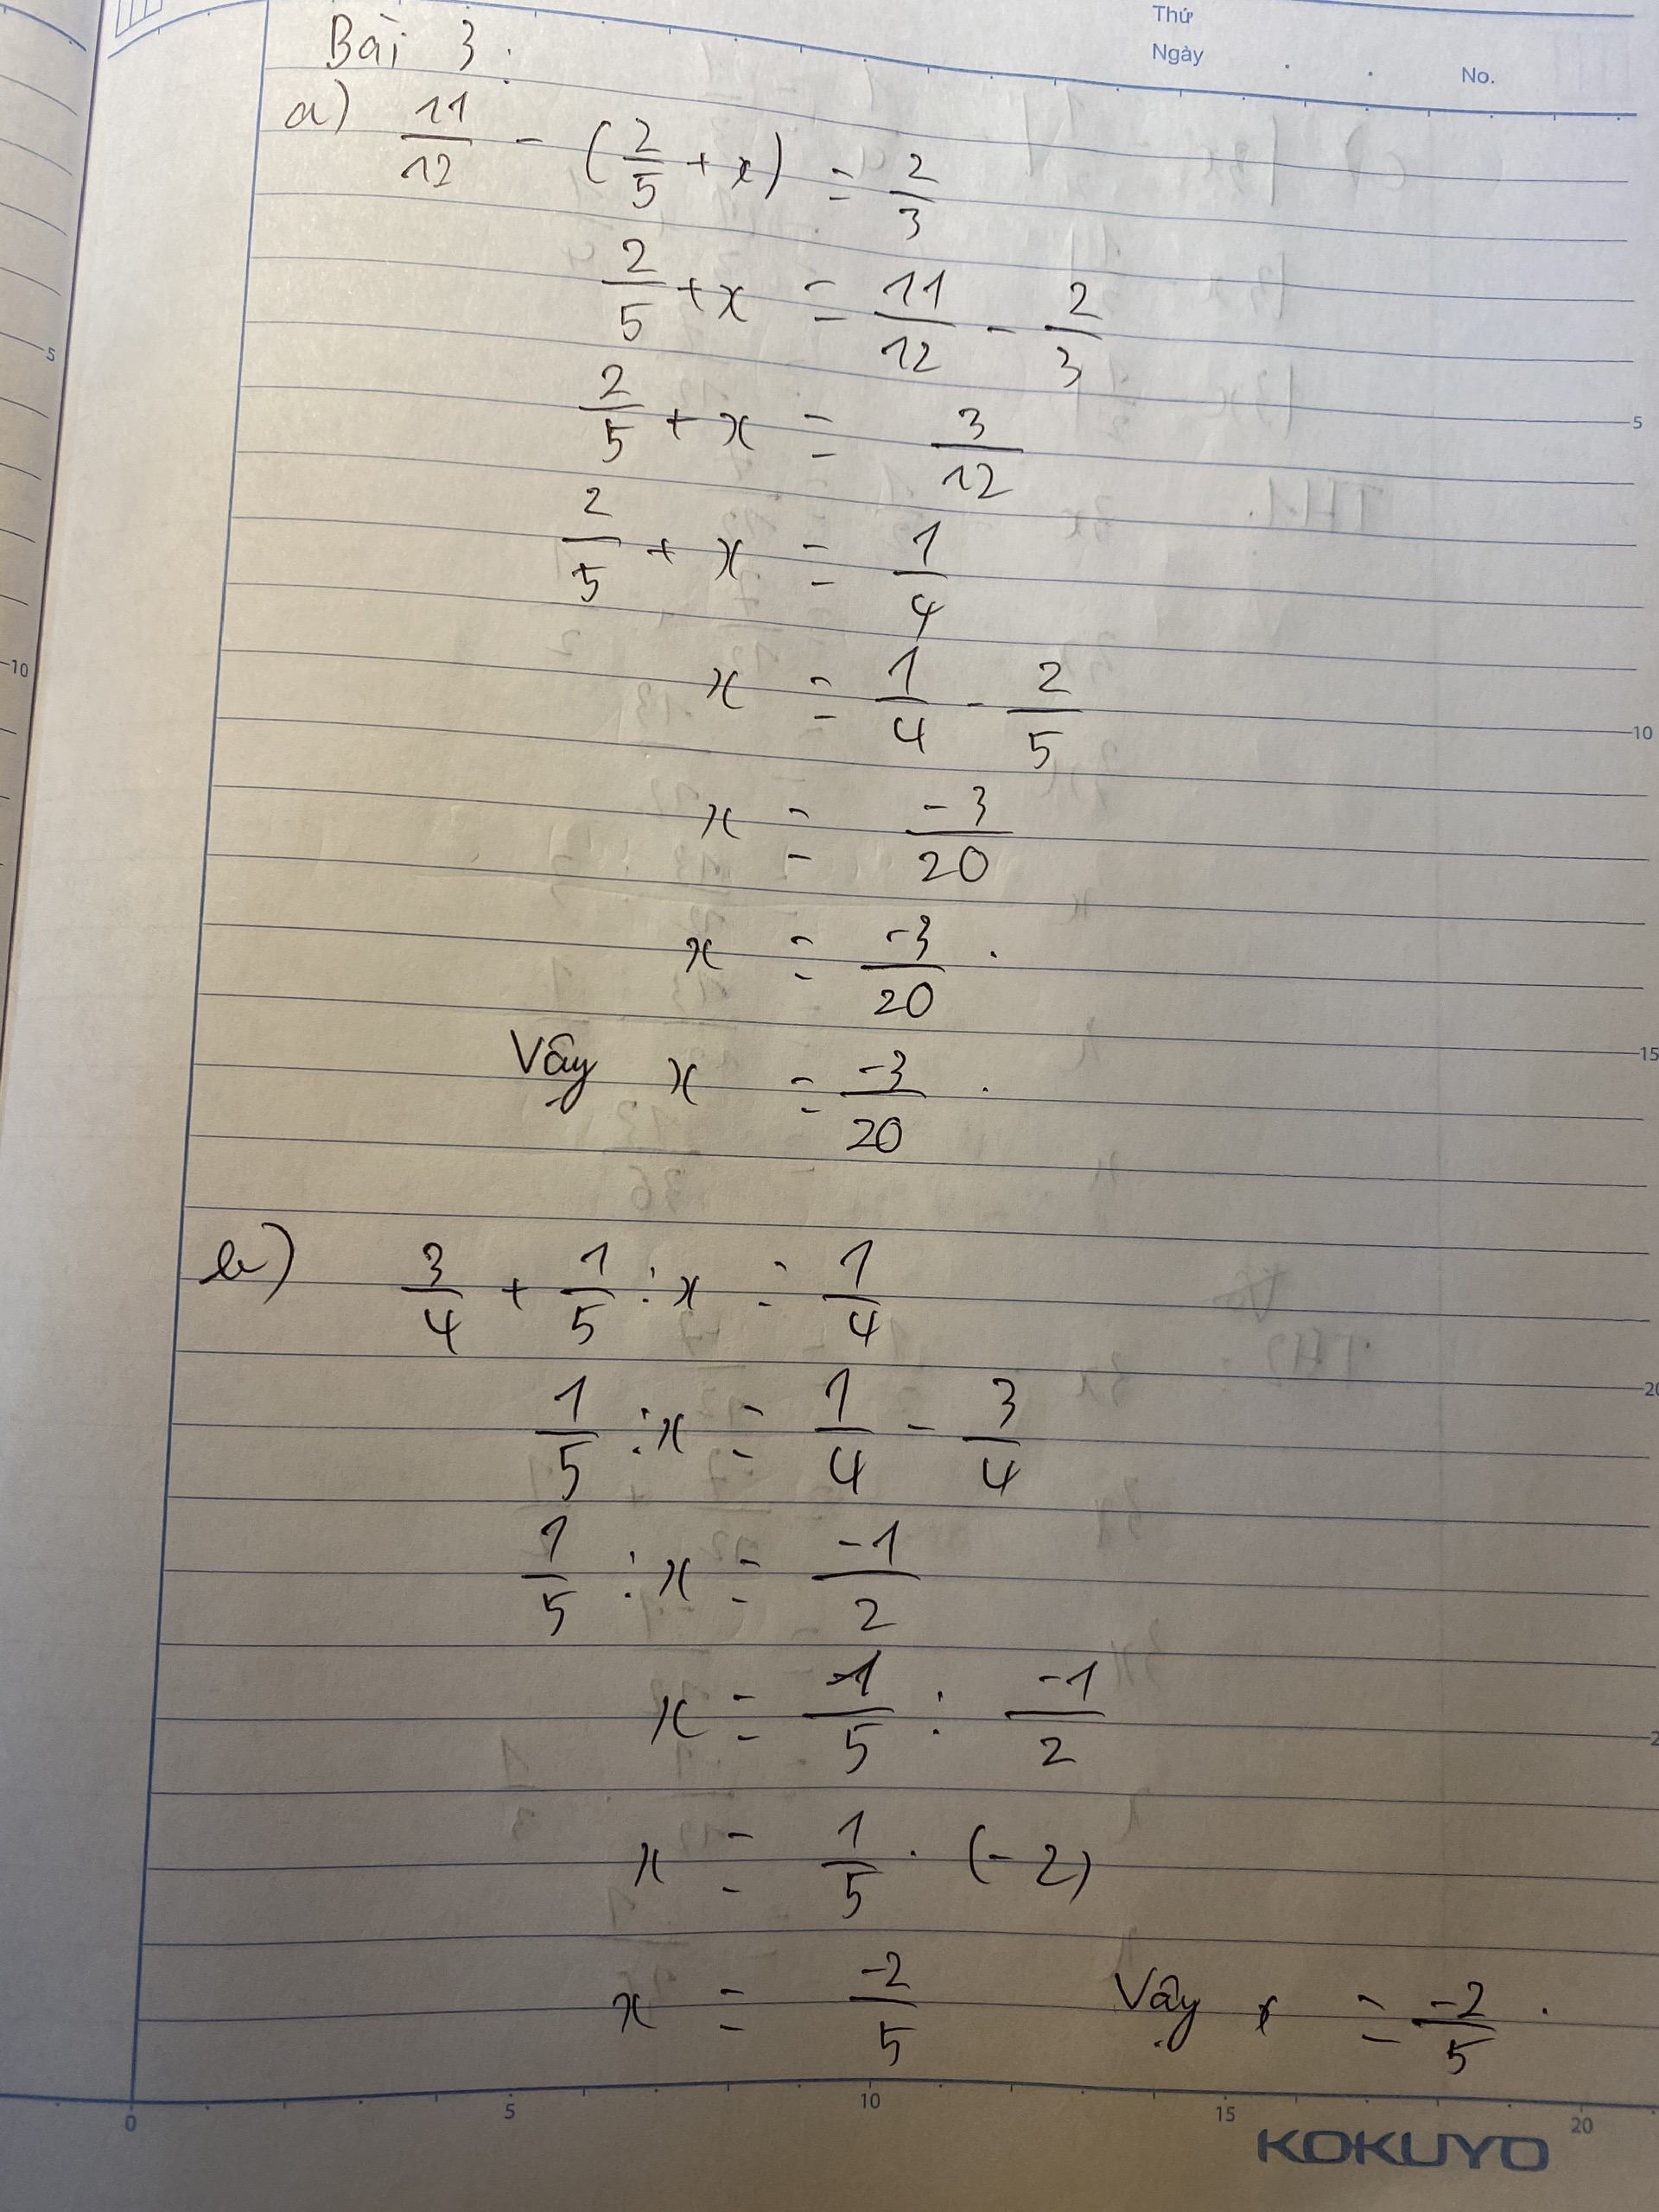 Thứ
Ngày . . No.
Bài 3:
a) 11/12 - (2/5 + x) = 2/3
2/5 + x = 11/12 - 2/3
2/5 + x = 3/12
2/5 + x = 1/4
x = 1/4 - 2/5
x = -3/20
x = -3/20 .
Vậy x = -3/20 .
b) 3/4 + 1/5 : x = 1/4
1/5 : x = 1/4 - 3/4
1/5 : x = -1/2
x = 1/5 : -1/2
x = 1/5 . (-2)
x = -2/5 Vậy x = -2/5 .
5
10
5
10
15
20
0 5 10 15 20
KOKUYO